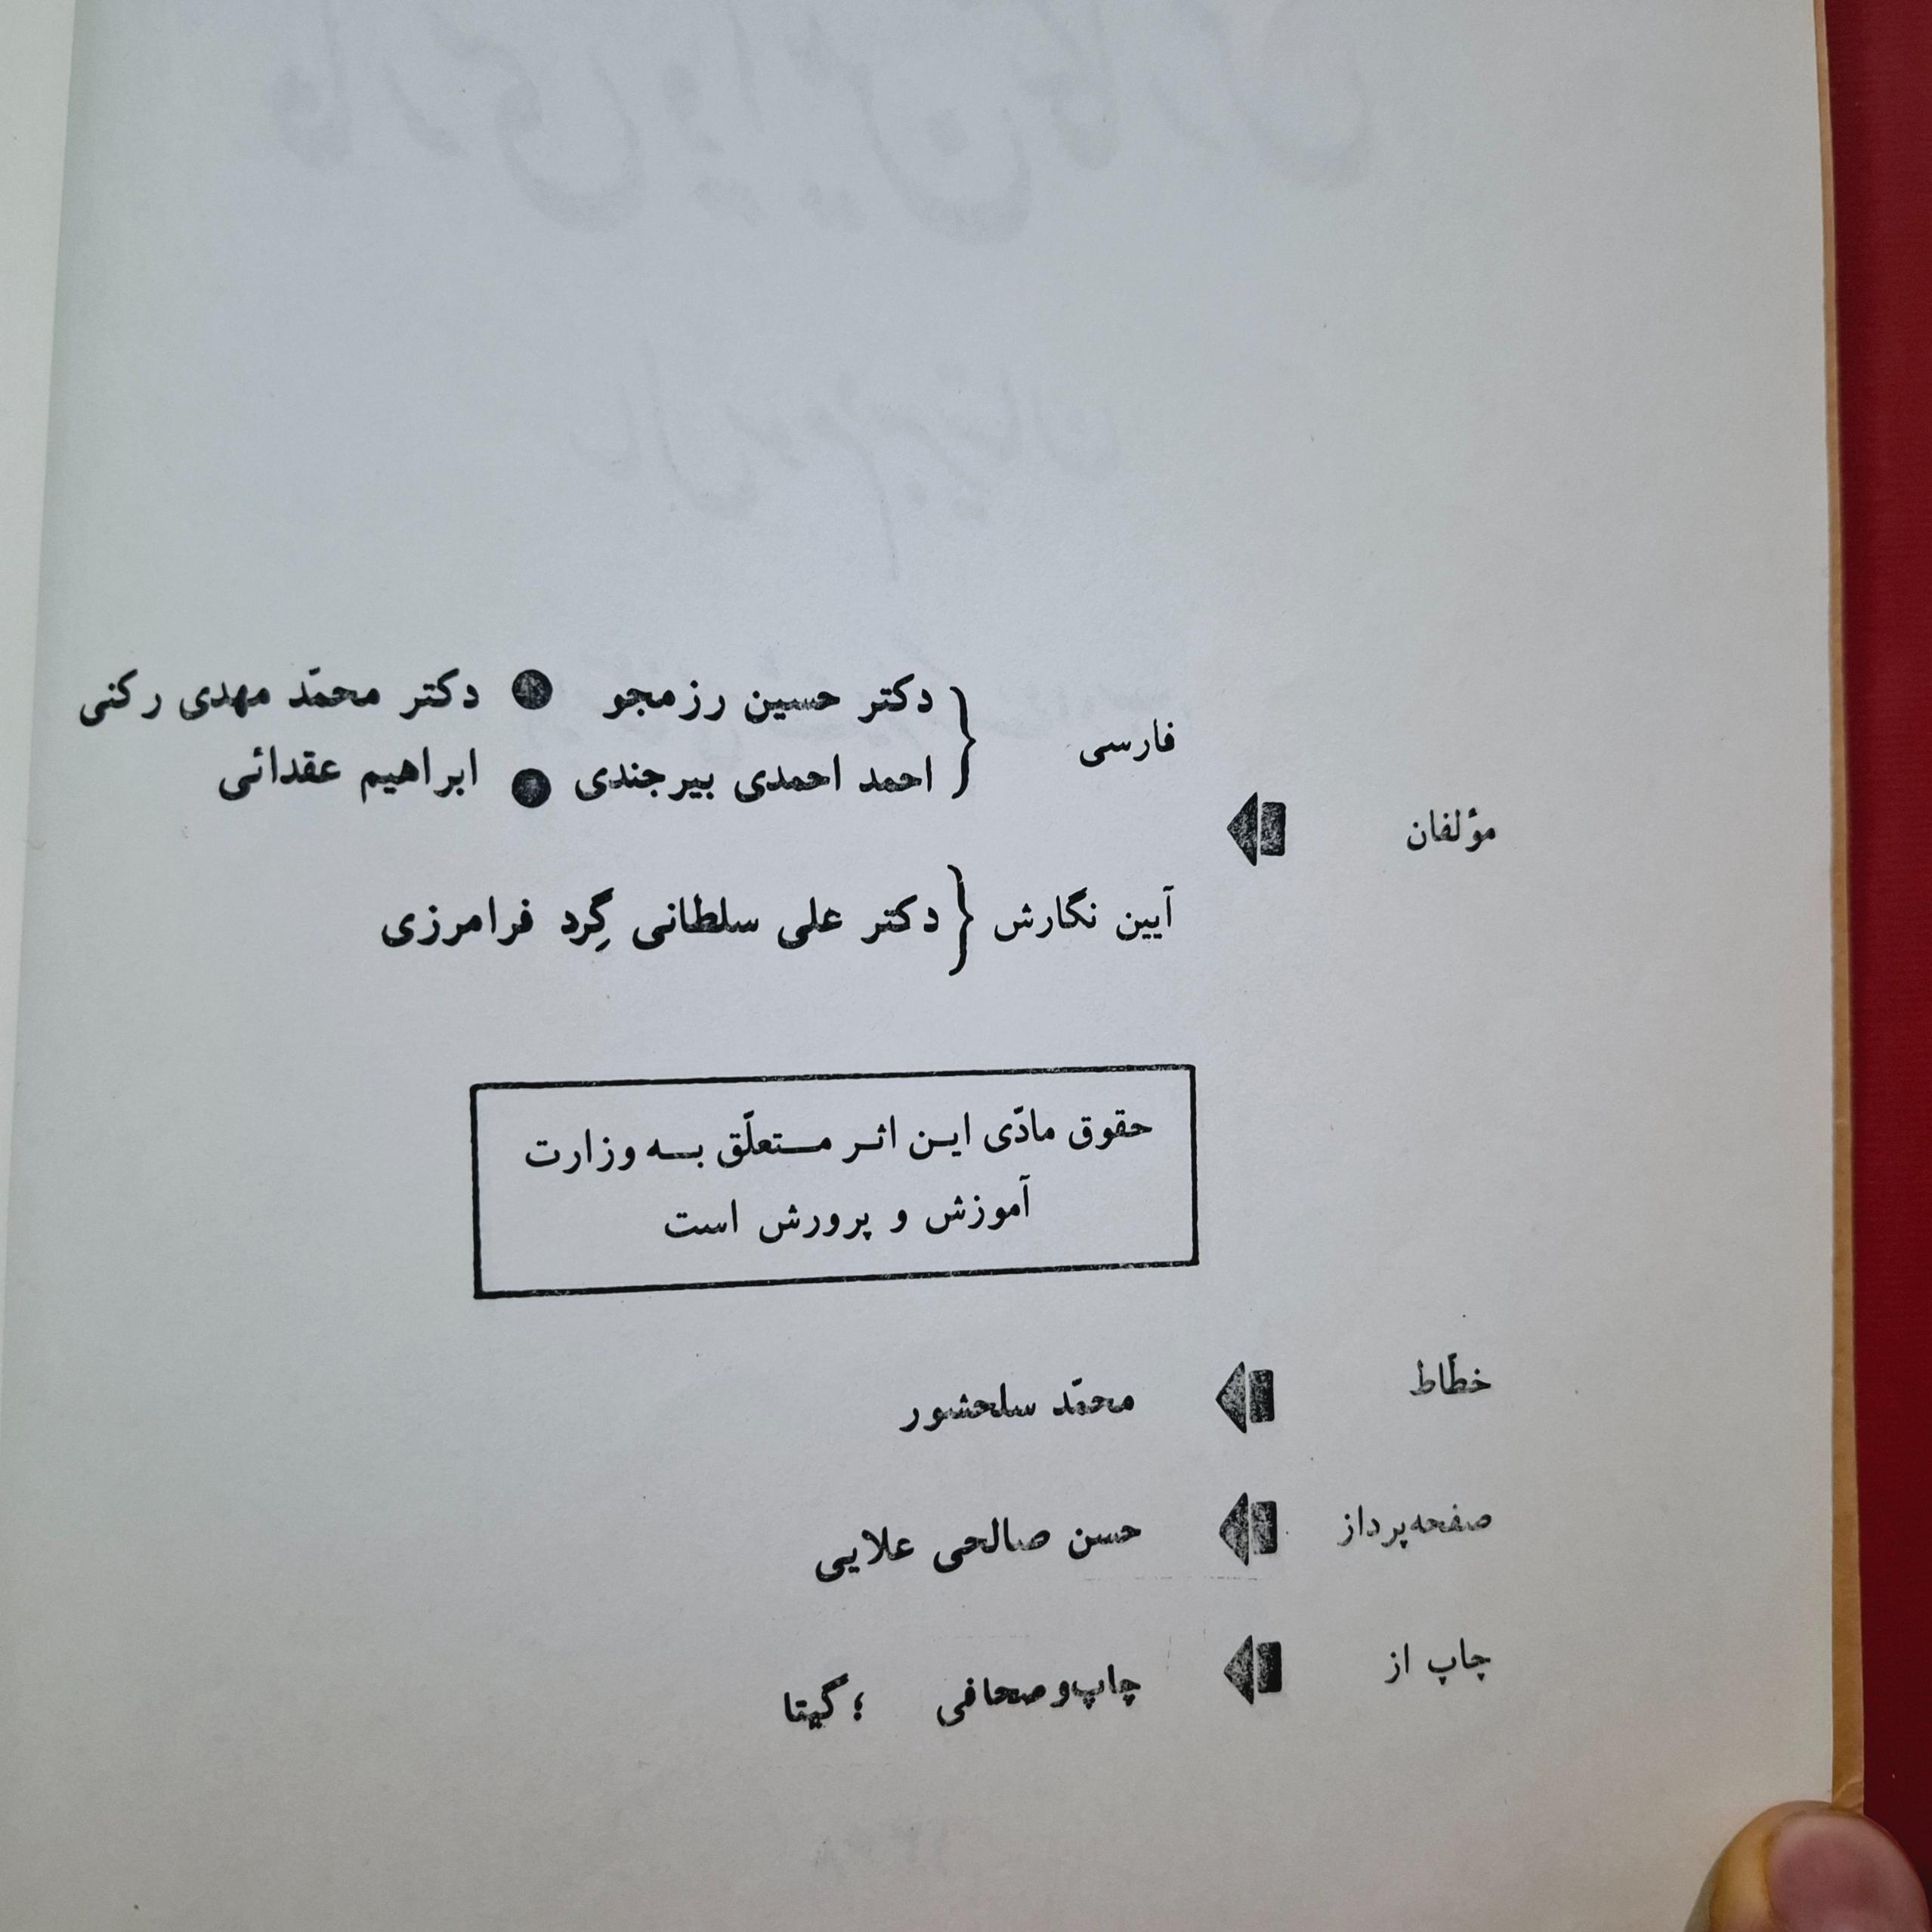 فارسی
دکتر حسین رزمجو ● دکتر محمّد مهدی رکنی
احمد احمدی بیرجندی ● ابراهیم عقدائی
مؤلفان
آیین نگارش { دکتر علی سلطانی گِرد فرامرزی
حقوق مادّی ایـن اثـر مـتعلّق بـه وزارت
آموزش و پرورش است
خطّاط محمّد سلحشور
صفحه‌پرداز حسن صالحی علایی
چاپ از چاپ‌وصحافی ؛ گیتا